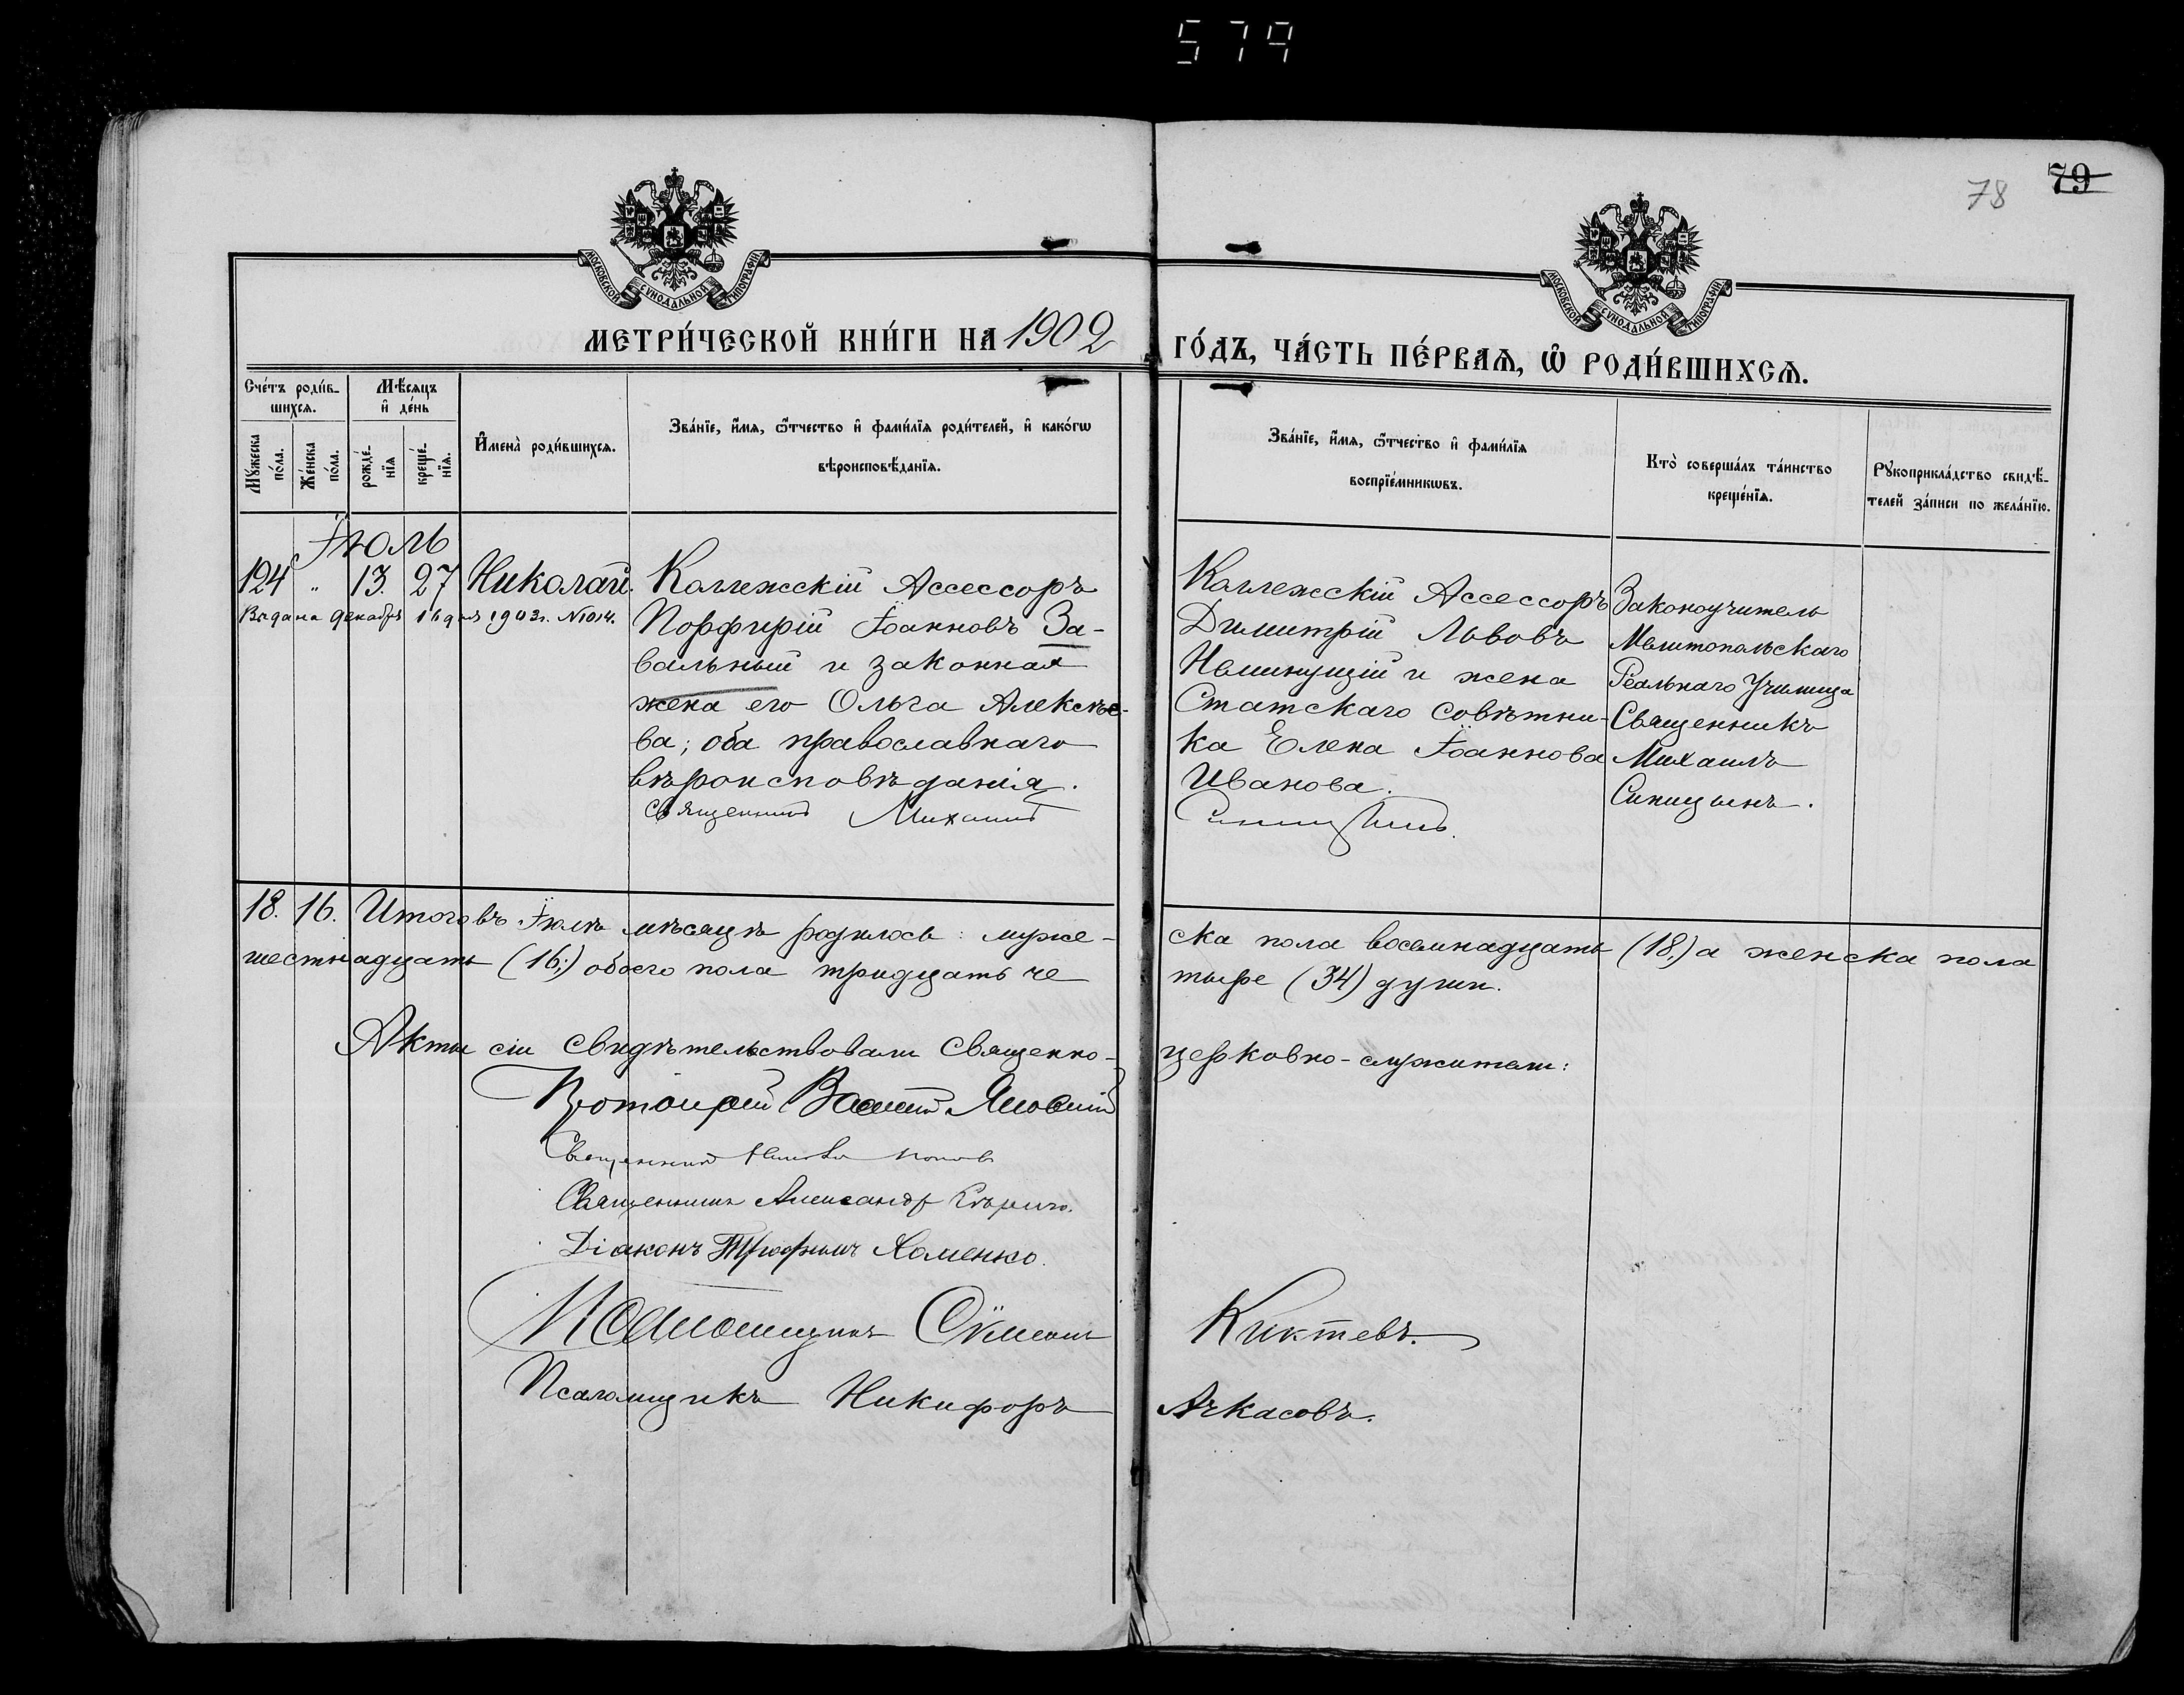 579
78 79
МОСКОВСКОЙ СѴНОДАЛЬНОЙ ТИПОГРАФІИ
МОСКОВСКОЙ СѴНОДАЛЬНОЙ ТИПОГРАФІИ
МЕТРИ́ЧЕСКОЙ КНИ́ГИ НА 1902 ГО́ДЪ, ЧА́СТЬ ПЕ́РВАѦ, Ѽ РОДИ́ВШИХСѦ.
Сче́тъ роди́в-
шихсѧ.
Мѣ́сѧцъ
и҆ де́нь
Мꙋ́жеска
по́ла.
Же́нска
по́ла.
рожде́-
нїѧ
креще́-
нїѧ.
И҆мена̀ роди́вшихсѧ.
Зва́нїе, и҆́мѧ, ѻ҆́тчество и҆ фами́лїѧ роди́телей, и҆ како́гѡ
вѣроисповѣ́данїѧ.
Зва́нїе, и҆́мѧ, ѻ҆́тчество и҆ фами́лїѧ
воспрїе́мникѡвъ.
Кто̀ соверша́лъ та́инство
креще́нїѧ.
Рꙋкоприкла́дство свидѣ́-
телей за́писи по жела́нїю.
Іюль
124 " 13. 27 Николай.
Выдана Декабря 16 дня 1903 г. №1014.
Коллежскій Ассессоръ
Порфирій Іоанновъ За-
вальный и законная
жена его Ольга Алексѣе-
ва; оба православнаго
вѣроисповѣданія.
Священникъ Михаилъ
Коллежскій Ассессоръ
Димитрій Львовъ
Неминущій и жена
Статскаго совѣтни-
ка Елена Іоаннова
Иванова.
Синицынъ.
Законоучитель
Мелитопольскаго
Реальнаго Училища
Священникъ
Михаилъ
Синицынъ.
18. 16. Итого въ Іюлѣ мѣсяцѣ родилось: муже-ска пола восемнадцать (18,) а женска пола
шестнадцать (16;) обоего пола тридцать че тыре (34) души.
Акты сіи свидѣтельствовали Священно-церковно-служители:
Протоіерей Василій
Священникъ Попов
Священникъ Александр
Діаконъ Трофимъ Хоменко.
Псаломщикъ Сѵмеонъ Киктевъ.
Псаломщикъ Никифоръ Ачкасовъ.